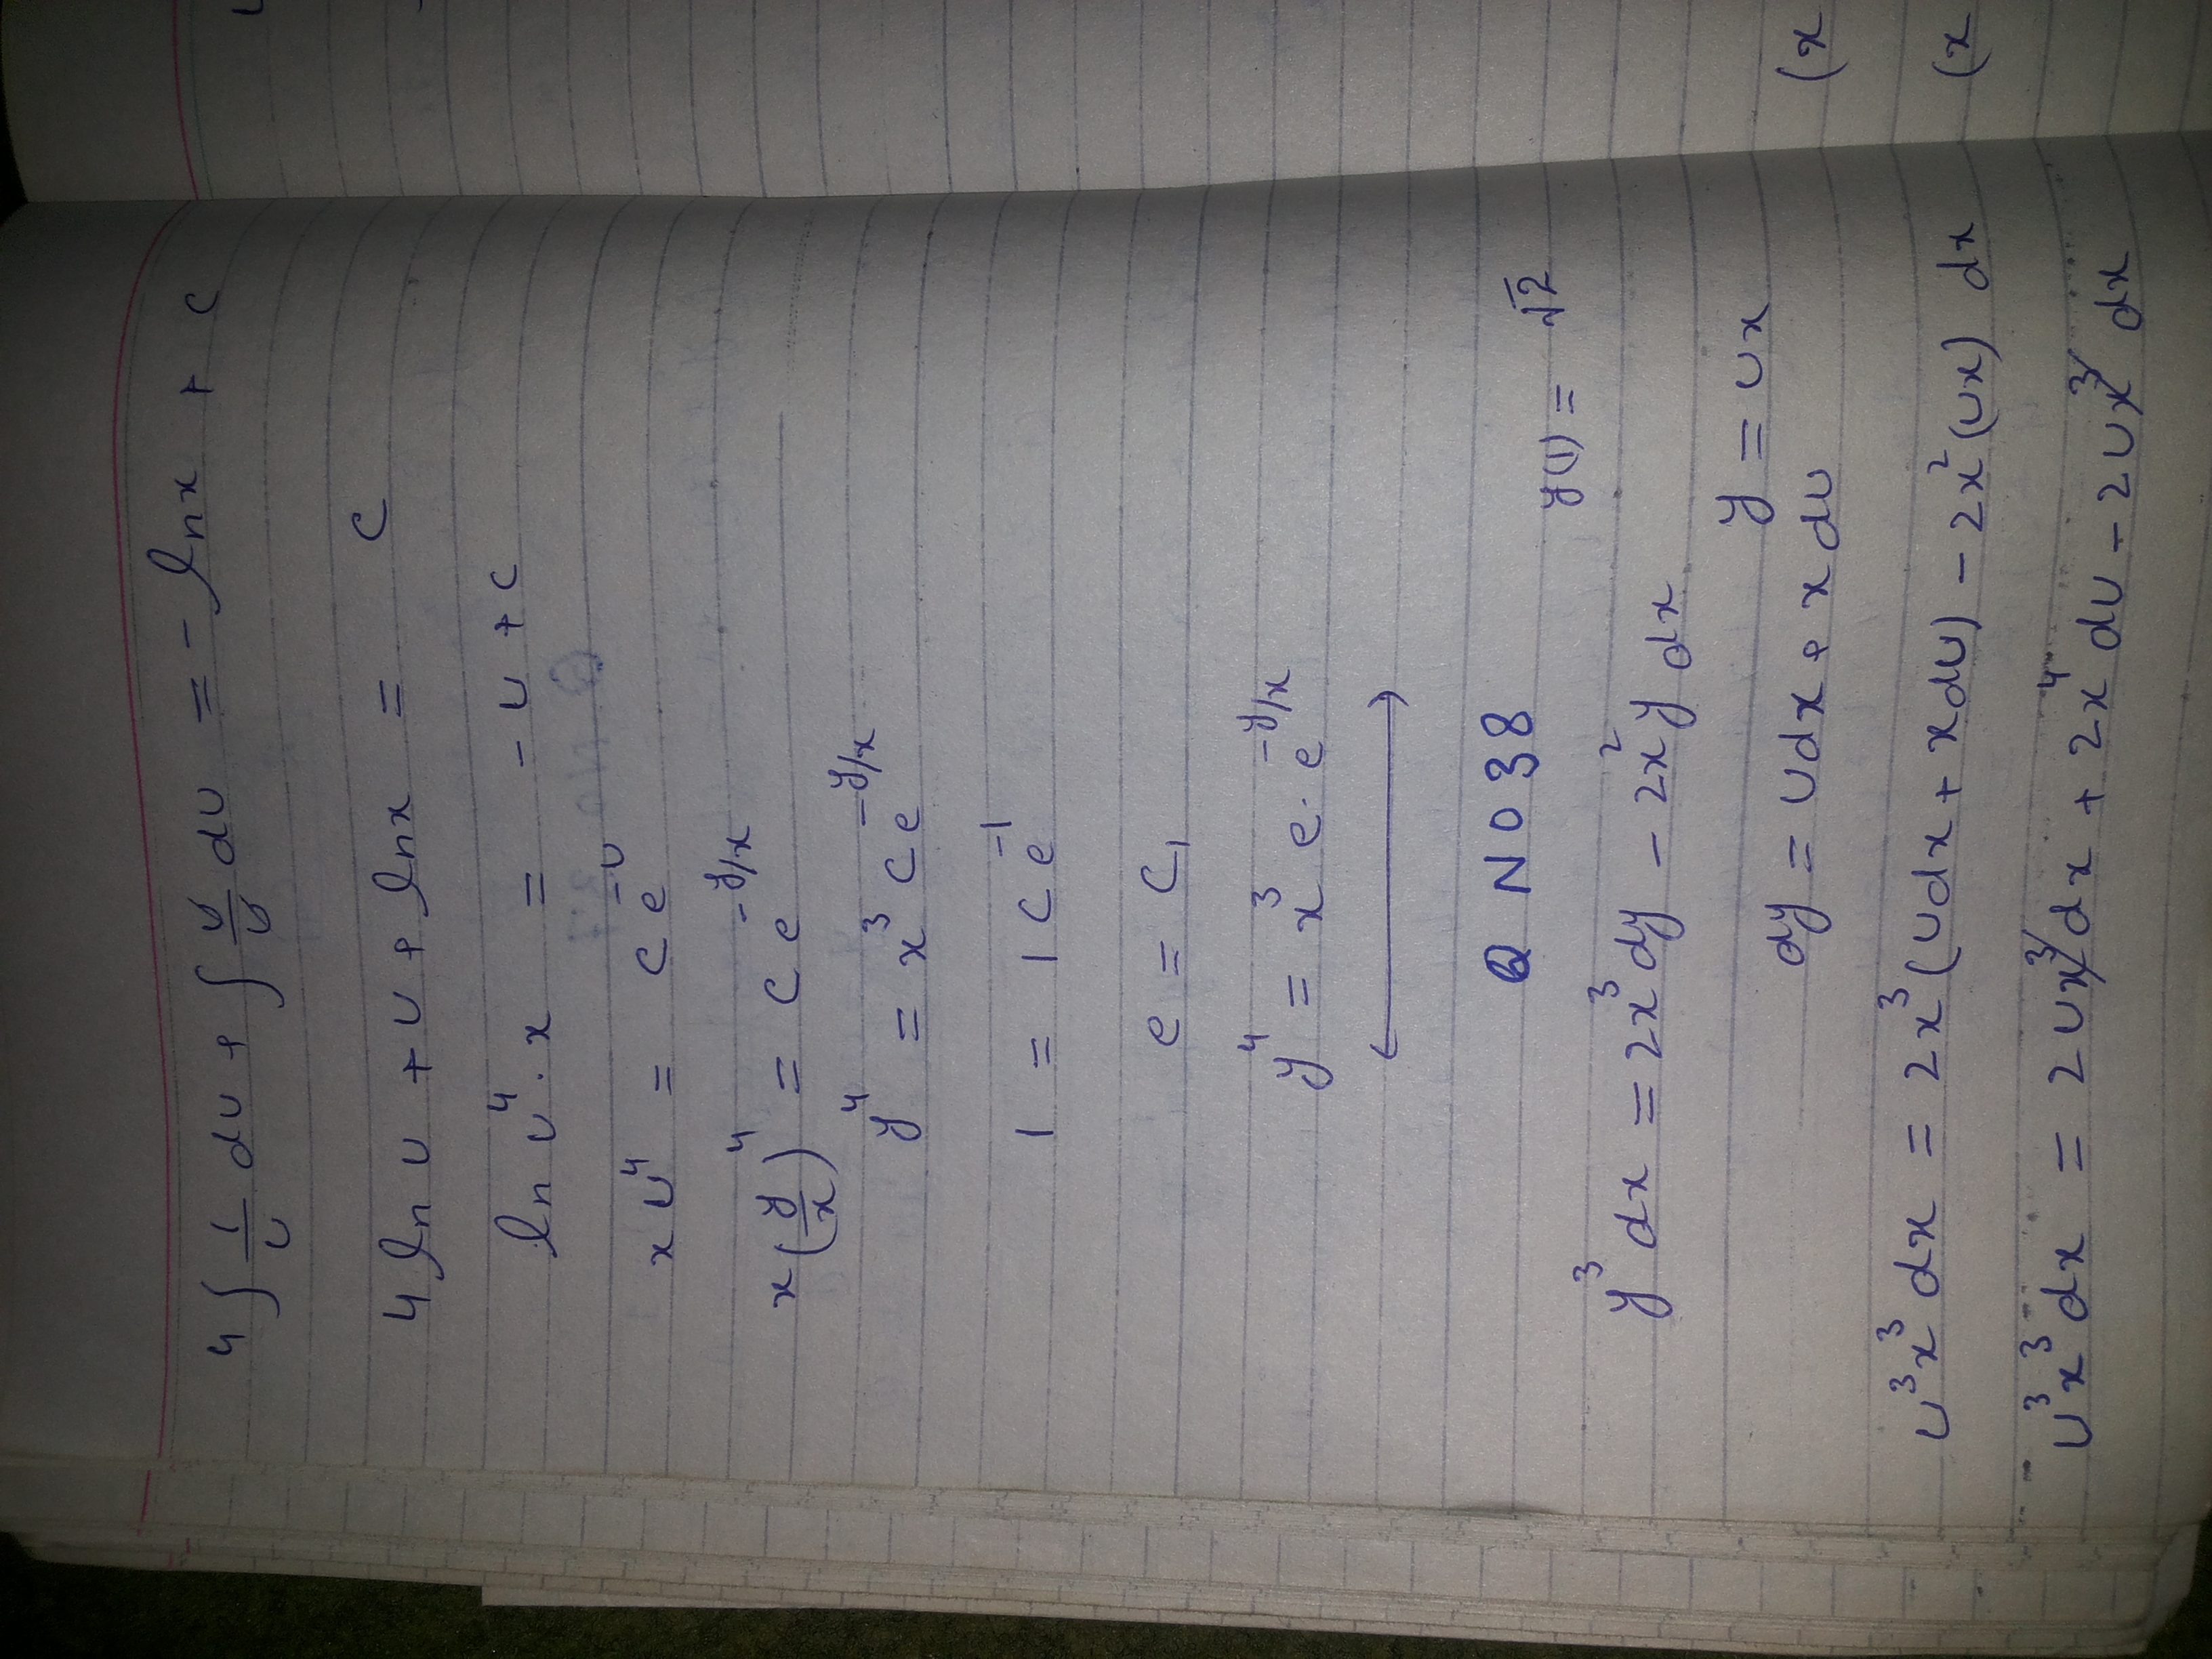 4∫ 1/u du + ∫ u/u du = - ln x + c
4 ln u + u + ln x = c
ln u⁴ . x = - u + c
x u⁴ = c e^-u
x (y/x)⁴ = c e^-y/x
y⁴ = x³ c e^-y/x
1 = 1 c e^-1
e = c₁
y⁴ = x³ e . e^-y/x
Q NO 38
y(1) = √2
y³ dx = 2x³ dy - 2x² y dx
y = ux
dy = u dx + x du
u³x³ dx = 2x³ (u dx + x du) - 2x² (ux) dx
u³x³ dx = 2ux³ dx + 2x⁴ du - 2ux³ dx
(x
(x